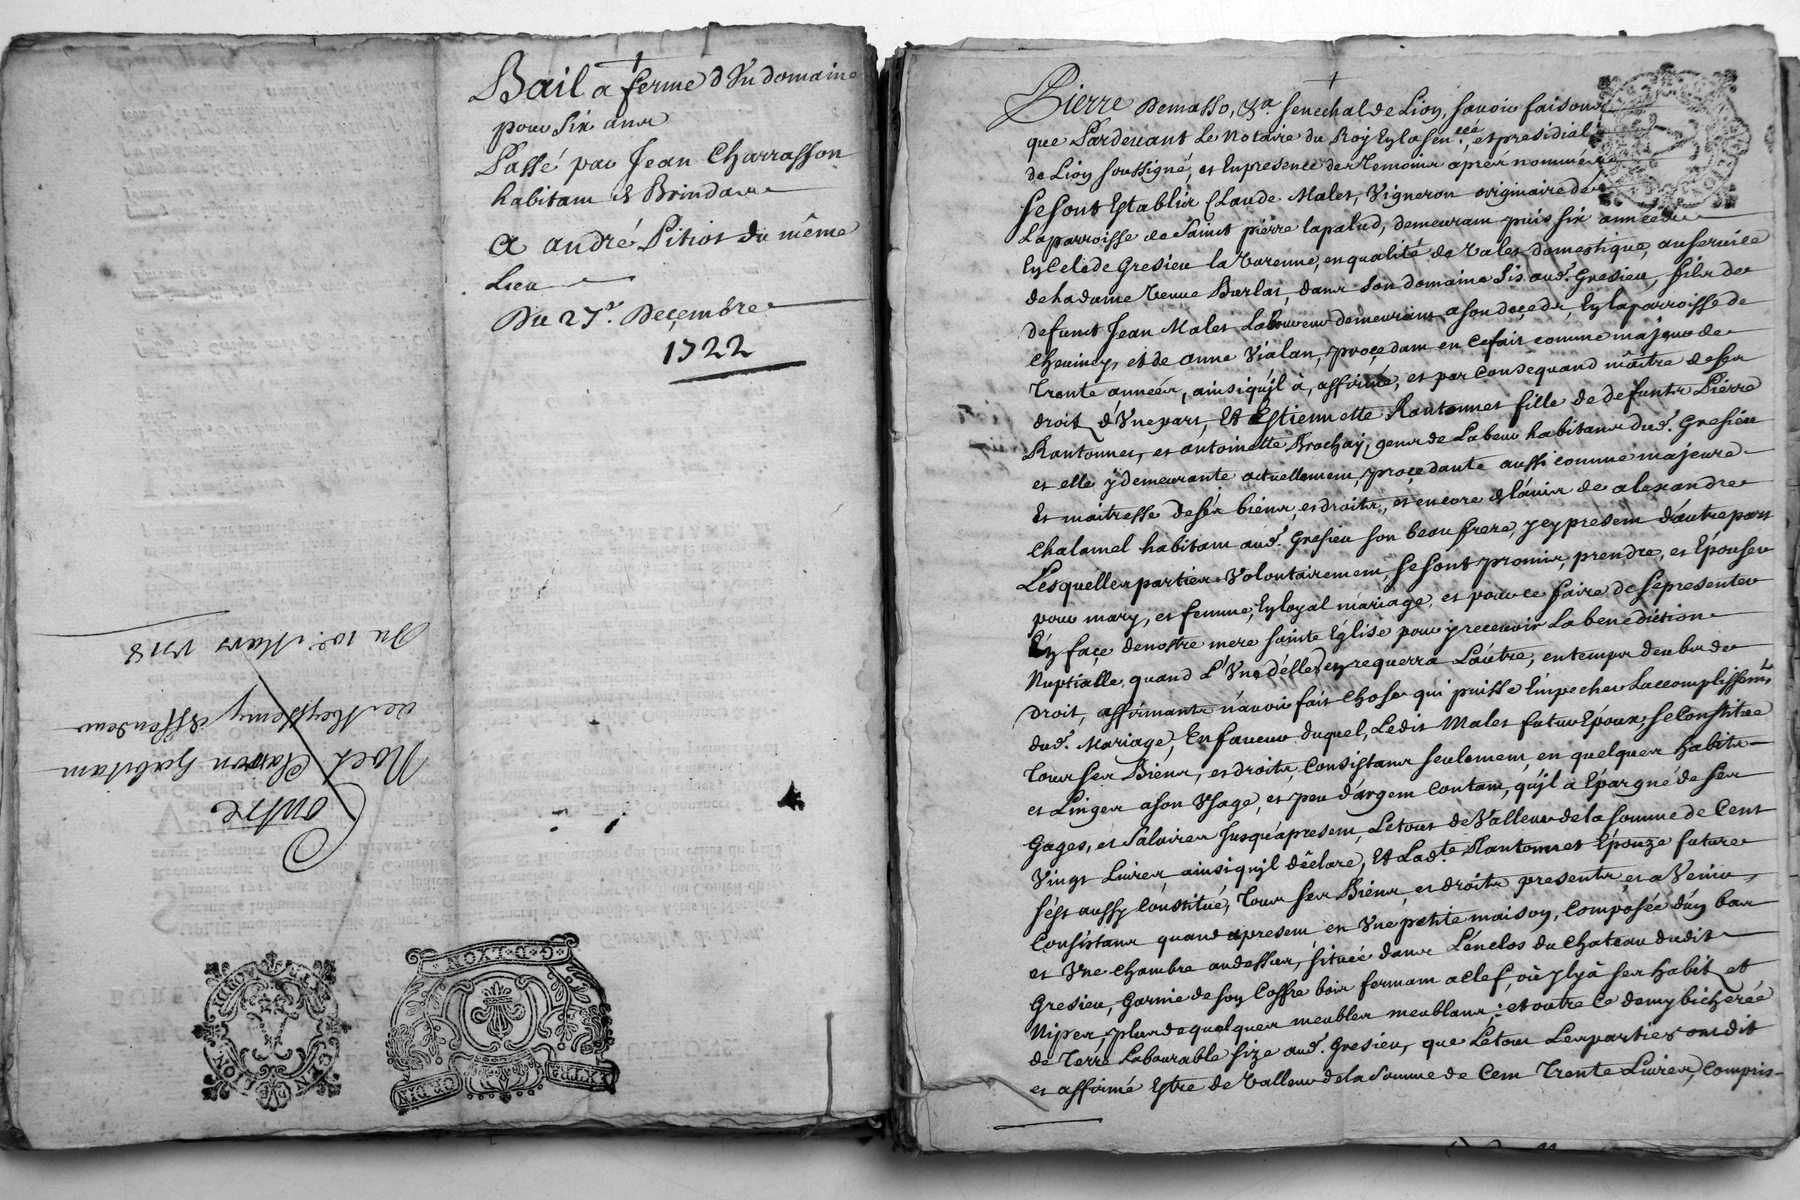 Bail a ferme d'Un domaine
pour Six ans
Passé par Jean Charrasson
habitant de Brindas
A andré Pitiot du même
Lieu
Du 27e. Decembre
1722
Contre
Noel Claron habitant
de Messimy deffendeur
Du 10e. Mars 1718
G. D. LYON
EXTRA ORDIN
Pierre Demasso, &a. Senechal de Lion, scavoir faisons
que Pardevant Le Notaire du Roy En la sen.cée, et presidial
de Lion soussigné, et En presence des Temoins apres nommés
se sont Establis Claude Malet, Vigneron originaire de
Laparroisse de Saint pierre lapalud, demeurant puis six années
En Celle de Gresieu la Varenne, en qualité de Valet domestique, au service
de La dame Veuve Burlat, dans son domaine sis aud. Gresieu, fils de
defunct Jean Malet Laboureur demeurant a son deçedz, En laparroisse de
Chevinay, et de anne Vialan, proçedant en Ce fait comme majeur de
Trente années, ainsi qu'jl à affirmé, et par Consequand maître de ses
droits d'Une part, Et Estiennette Rantonnet fille de defunts Pierre
Rantonnet, et antoinette Brochay, gens de Labeur habitans dud. Gresieu
et elle y demeurante actuellement, proçedante aussi comme majeure
Et maitresse de ses biens, et droits, et encore de l'avis de alexandre
Chalamel habitant aud. Gresieu son beau frere, jcy present d'autre part
Lesquelles parties Volontairement, se sont promis, prendre, et Epouser
pour mary, et femme, En loyal mariage, et pour ce faire de se presenter
En façe de nostre mere sainte Eglise pour y recevoir La benediction
Nuptialle, quand L'Une d'elles en requerra L'autre, en temps deub de
droit, affirmants n'avoir fait Chose qui puisse Empecher Laccomplissem.t
dud. Mariage, En faveur duquel, Ledit Malet futur Epoux, se Constitue
Tous ses Biens, et droits, Consistans seulement, en quelques habits
et Linges a son Usage, et peu d'argent Contant, qu'jl a Epargné de ses
Gages, et Salaires Jusqu'apresent, Le tout de Valleur de la somme de Cent
Vingt Livres ainsi qu'jl declare, Et Lad.te Rantonnet Epouze future
s'est aussy Constitué, Tous ses Biens, et droits presents, et a Venir,
Consistans quand apresent en Une petite maison, Composée d'un bas
et Une chambre au dessus, située dans L'enclos du Chateau dudit
Gresieu, Garnie de son Coffre bois fermant a clef, où jl y à ses habits et
Nipes, plus de quelques meubles meublans: et outre Ce demy bicherée
de Terre Labourable size aud. Gresieu, que Le tout Les parties ont dit
et affirmé Estre de Valleur de la somme de Cent Trente Livres, Compris